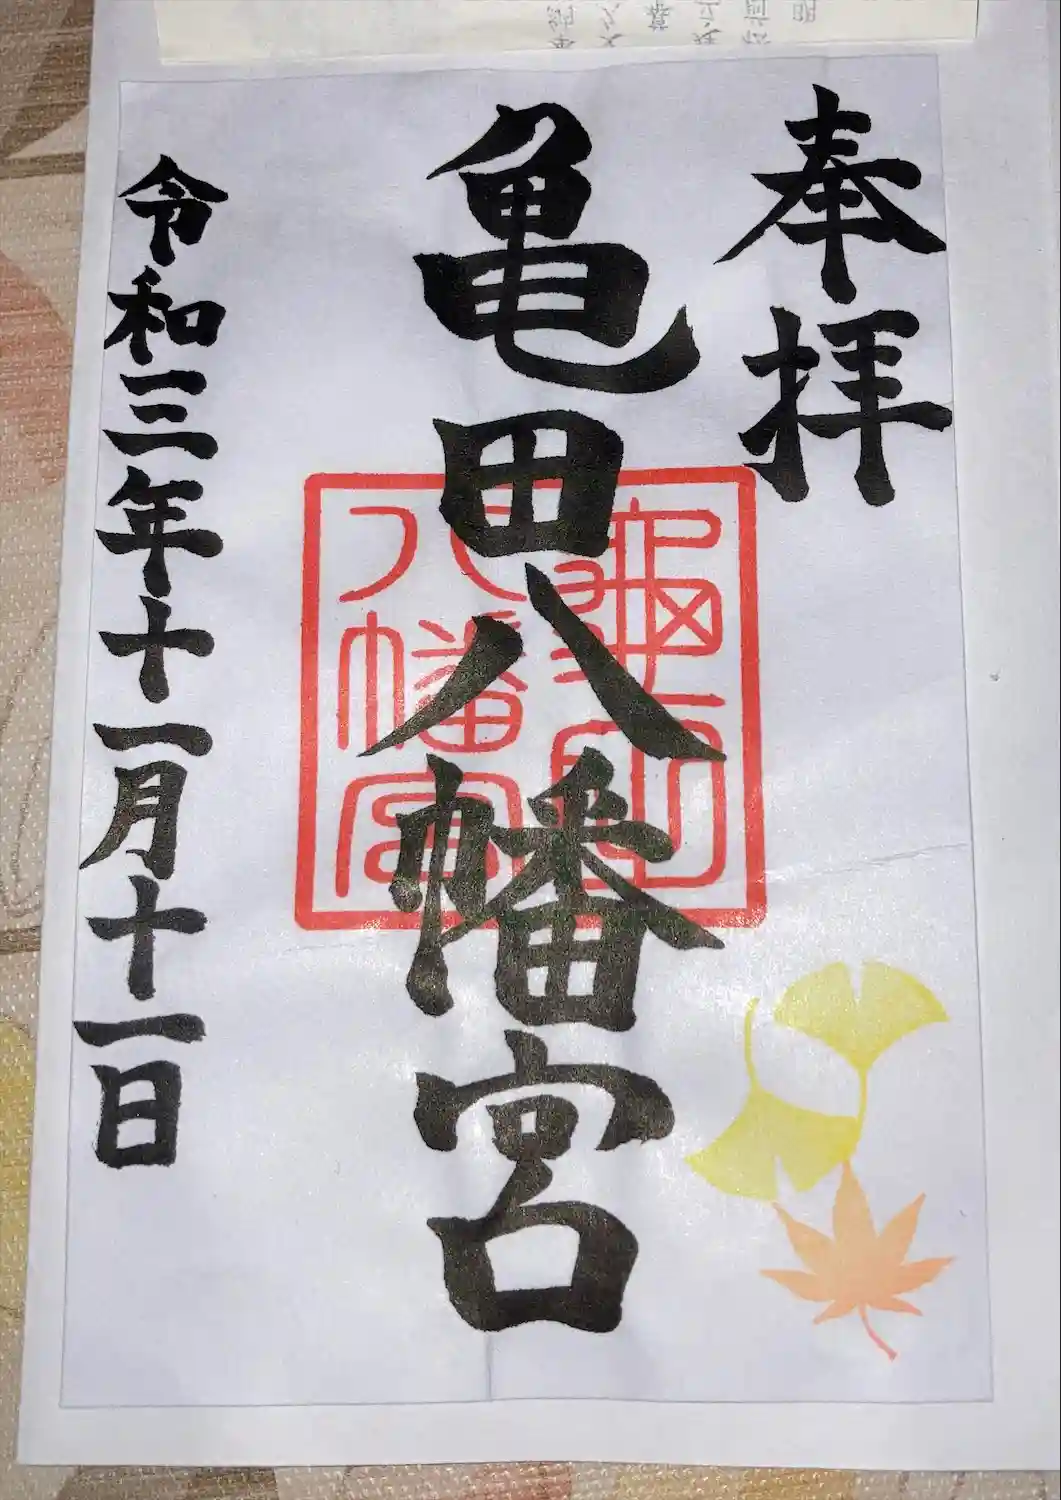 奉拝
亀田八幡宮
亀田
八幡宮
令和三年十一月十一日